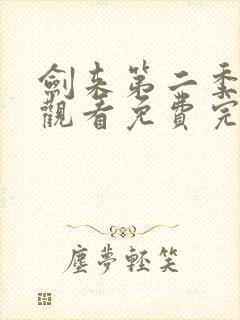 劍来第二季
觀看免費完
塵夢輕笑